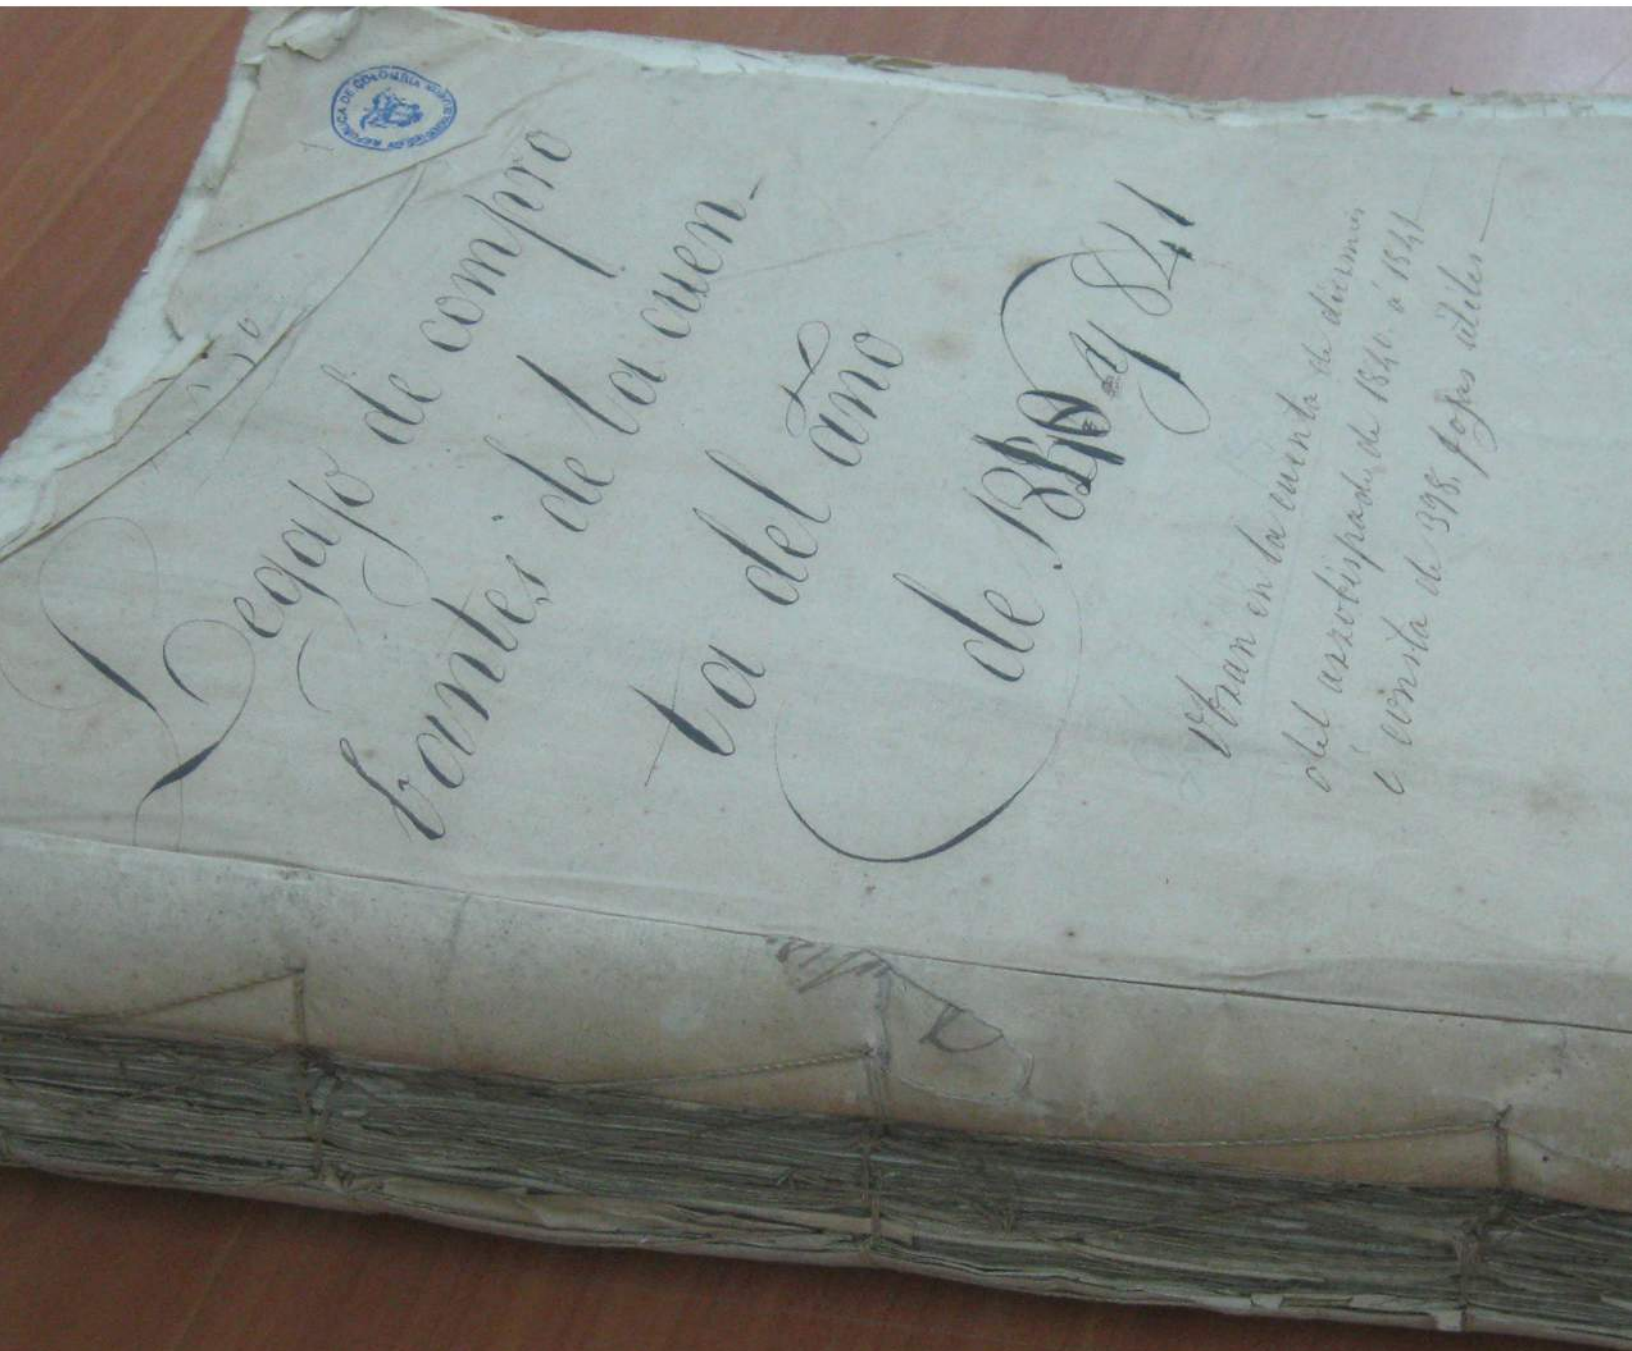 REPÚBLICA DE COLOMBIA
Legajo de compro
bantes de la cuen-
ta del año
de y 841
Obran en la cuenta de diezmos
del arzobispado, de 1840. á 1841
é consta de 398. fojas utiles